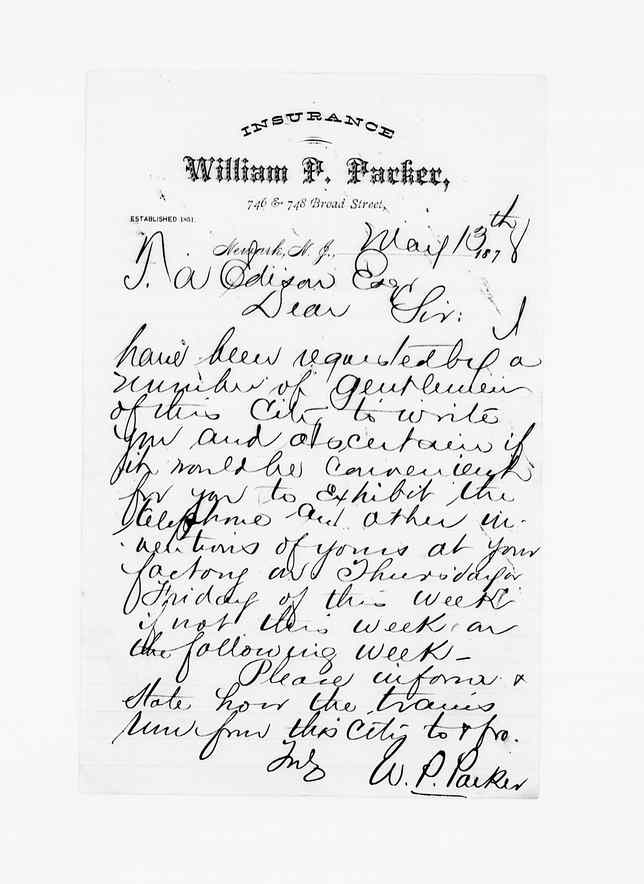 INSURANCE
William P. Parker,
746 & 748 Broad Street,
ESTABLISHED 1851.
Newark, N. J., May 13th 1878
T. a Edison Esqr
Dear Sir: I
have been requested by a
number of gentlemen
of this City to write
you and ascertain if
it would be convenient
for you to exhibit the
telephone and other in-
ventions of yours at your
factory on Thursday or
Friday of this week
if not this week on
the following week -
Please inform &
state how the trains
run from this City to & fro.
Truly
W. P. Parker